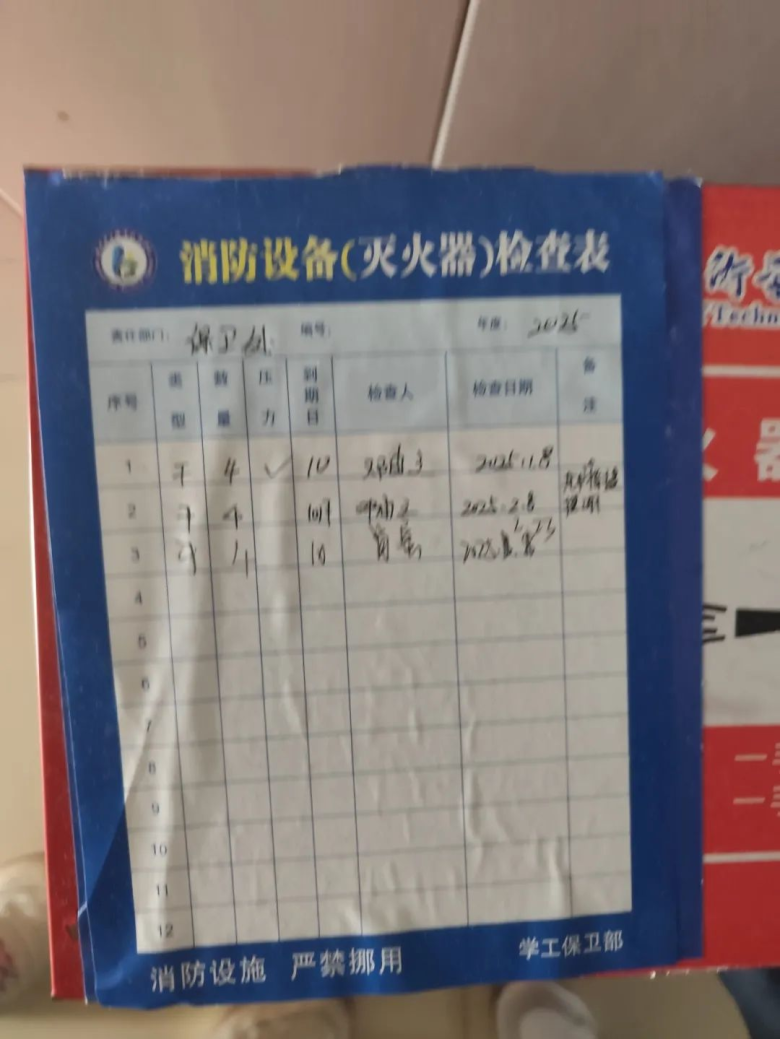 消防设备(灭火器)检查表
责任部门: 保卫处 编号: 年度: 2025
序号 类型 数量 压力 到期日 检查人 检查日期 备注
1 干 4 ✓ 10 2025.1.8
2 干 4 10 2025.2.8
3 干 4 10
4
5
6
7
8
9
10
11
12
消防设施 严禁挪用 学工保卫部
术
Techno
器